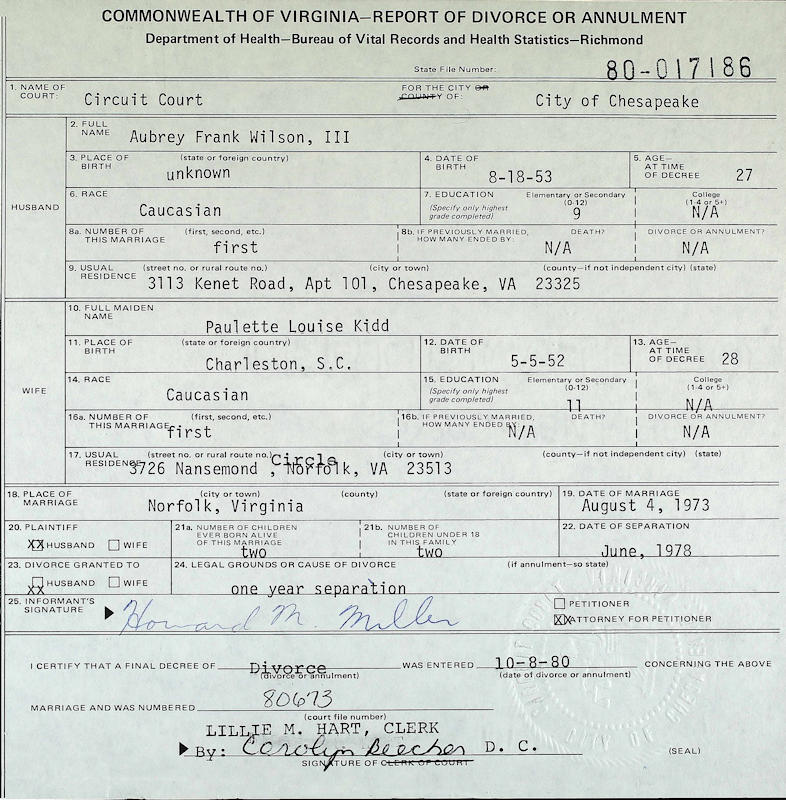 COMMONWEALTH OF VIRGINIA—REPORT OF DIVORCE OR ANNULMENT
Department of Health—Bureau of Vital Records and Health Statistics—Richmond
State File Number: 80-017186
1. NAME OF COURT: Circuit Court FOR THE CITY OR COUNTY OF: City of Chesapeake
HUSBAND
2. FULL NAME Aubrey Frank Wilson, III
3. PLACE OF BIRTH (state or foreign country) unknown 4. DATE OF BIRTH 8-18-53 5. AGE— AT TIME OF DECREE 27
6. RACE Caucasian 7. EDUCATION (Specify only highest grade completed) Elementary or Secondary (0-12) 9 College (1-4 or 5+) N/A
8a. NUMBER OF THIS MARRIAGE (first, second, etc.) first 8b. IF PREVIOUSLY MARRIED, HOW MANY ENDED BY: DEATH? N/A DIVORCE OR ANNULMENT? N/A
9. USUAL RESIDENCE (street no. or rural route no.) (city or town) (county—if not independent city) (state)
3113 Kenet Road, Apt 101, Chesapeake, VA 23325
WIFE
10. FULL MAIDEN NAME Paulette Louise Kidd
11. PLACE OF BIRTH (state or foreign country) Charleston, S.C. 12. DATE OF BIRTH 5-5-52 13. AGE— AT TIME OF DECREE 28
14. RACE Caucasian 15. EDUCATION (Specify only highest grade completed) Elementary or Secondary (0-12) 11 College (1-4 or 5+) N/A
16a. NUMBER OF THIS MARRIAGE (first, second, etc.) first 16b. IF PREVIOUSLY MARRIED, HOW MANY ENDED BY: DEATH? N/A DIVORCE OR ANNULMENT? N/A
17. USUAL RESIDENCE (street no. or rural route no.) (city or town) (county—if not independent city) (state)
3726 Nansemond Circle, Norfolk, VA 23513
18. PLACE OF MARRIAGE (city or town) (county) (state or foreign country) Norfolk, Virginia 19. DATE OF MARRIAGE August 4, 1973
20. PLAINTIFF XX HUSBAND WIFE 21a. NUMBER OF CHILDREN EVER BORN ALIVE OF THIS MARRIAGE two 21b. NUMBER OF CHILDREN UNDER 18 IN THIS FAMILY two 22. DATE OF SEPARATION June, 1978
23. DIVORCE GRANTED TO XX HUSBAND WIFE 24. LEGAL GROUNDS OR CAUSE OF DIVORCE (if annulment—so state) one year separation
25. INFORMANT'S SIGNATURE Howard M. Miller PETITIONER
XX ATTORNEY FOR PETITIONER
I CERTIFY THAT A FINAL DECREE OF Divorce WAS ENTERED 10-8-80 CONCERNING THE ABOVE
(divorce or annulment) (date of divorce or annulment)
MARRIAGE AND WAS NUMBERED 80673
(court file number)
LILLIE M. HART, CLERK
By: Carolyn Beecher D. C.
SIGNATURE OF CLERK OF COURT (SEAL)